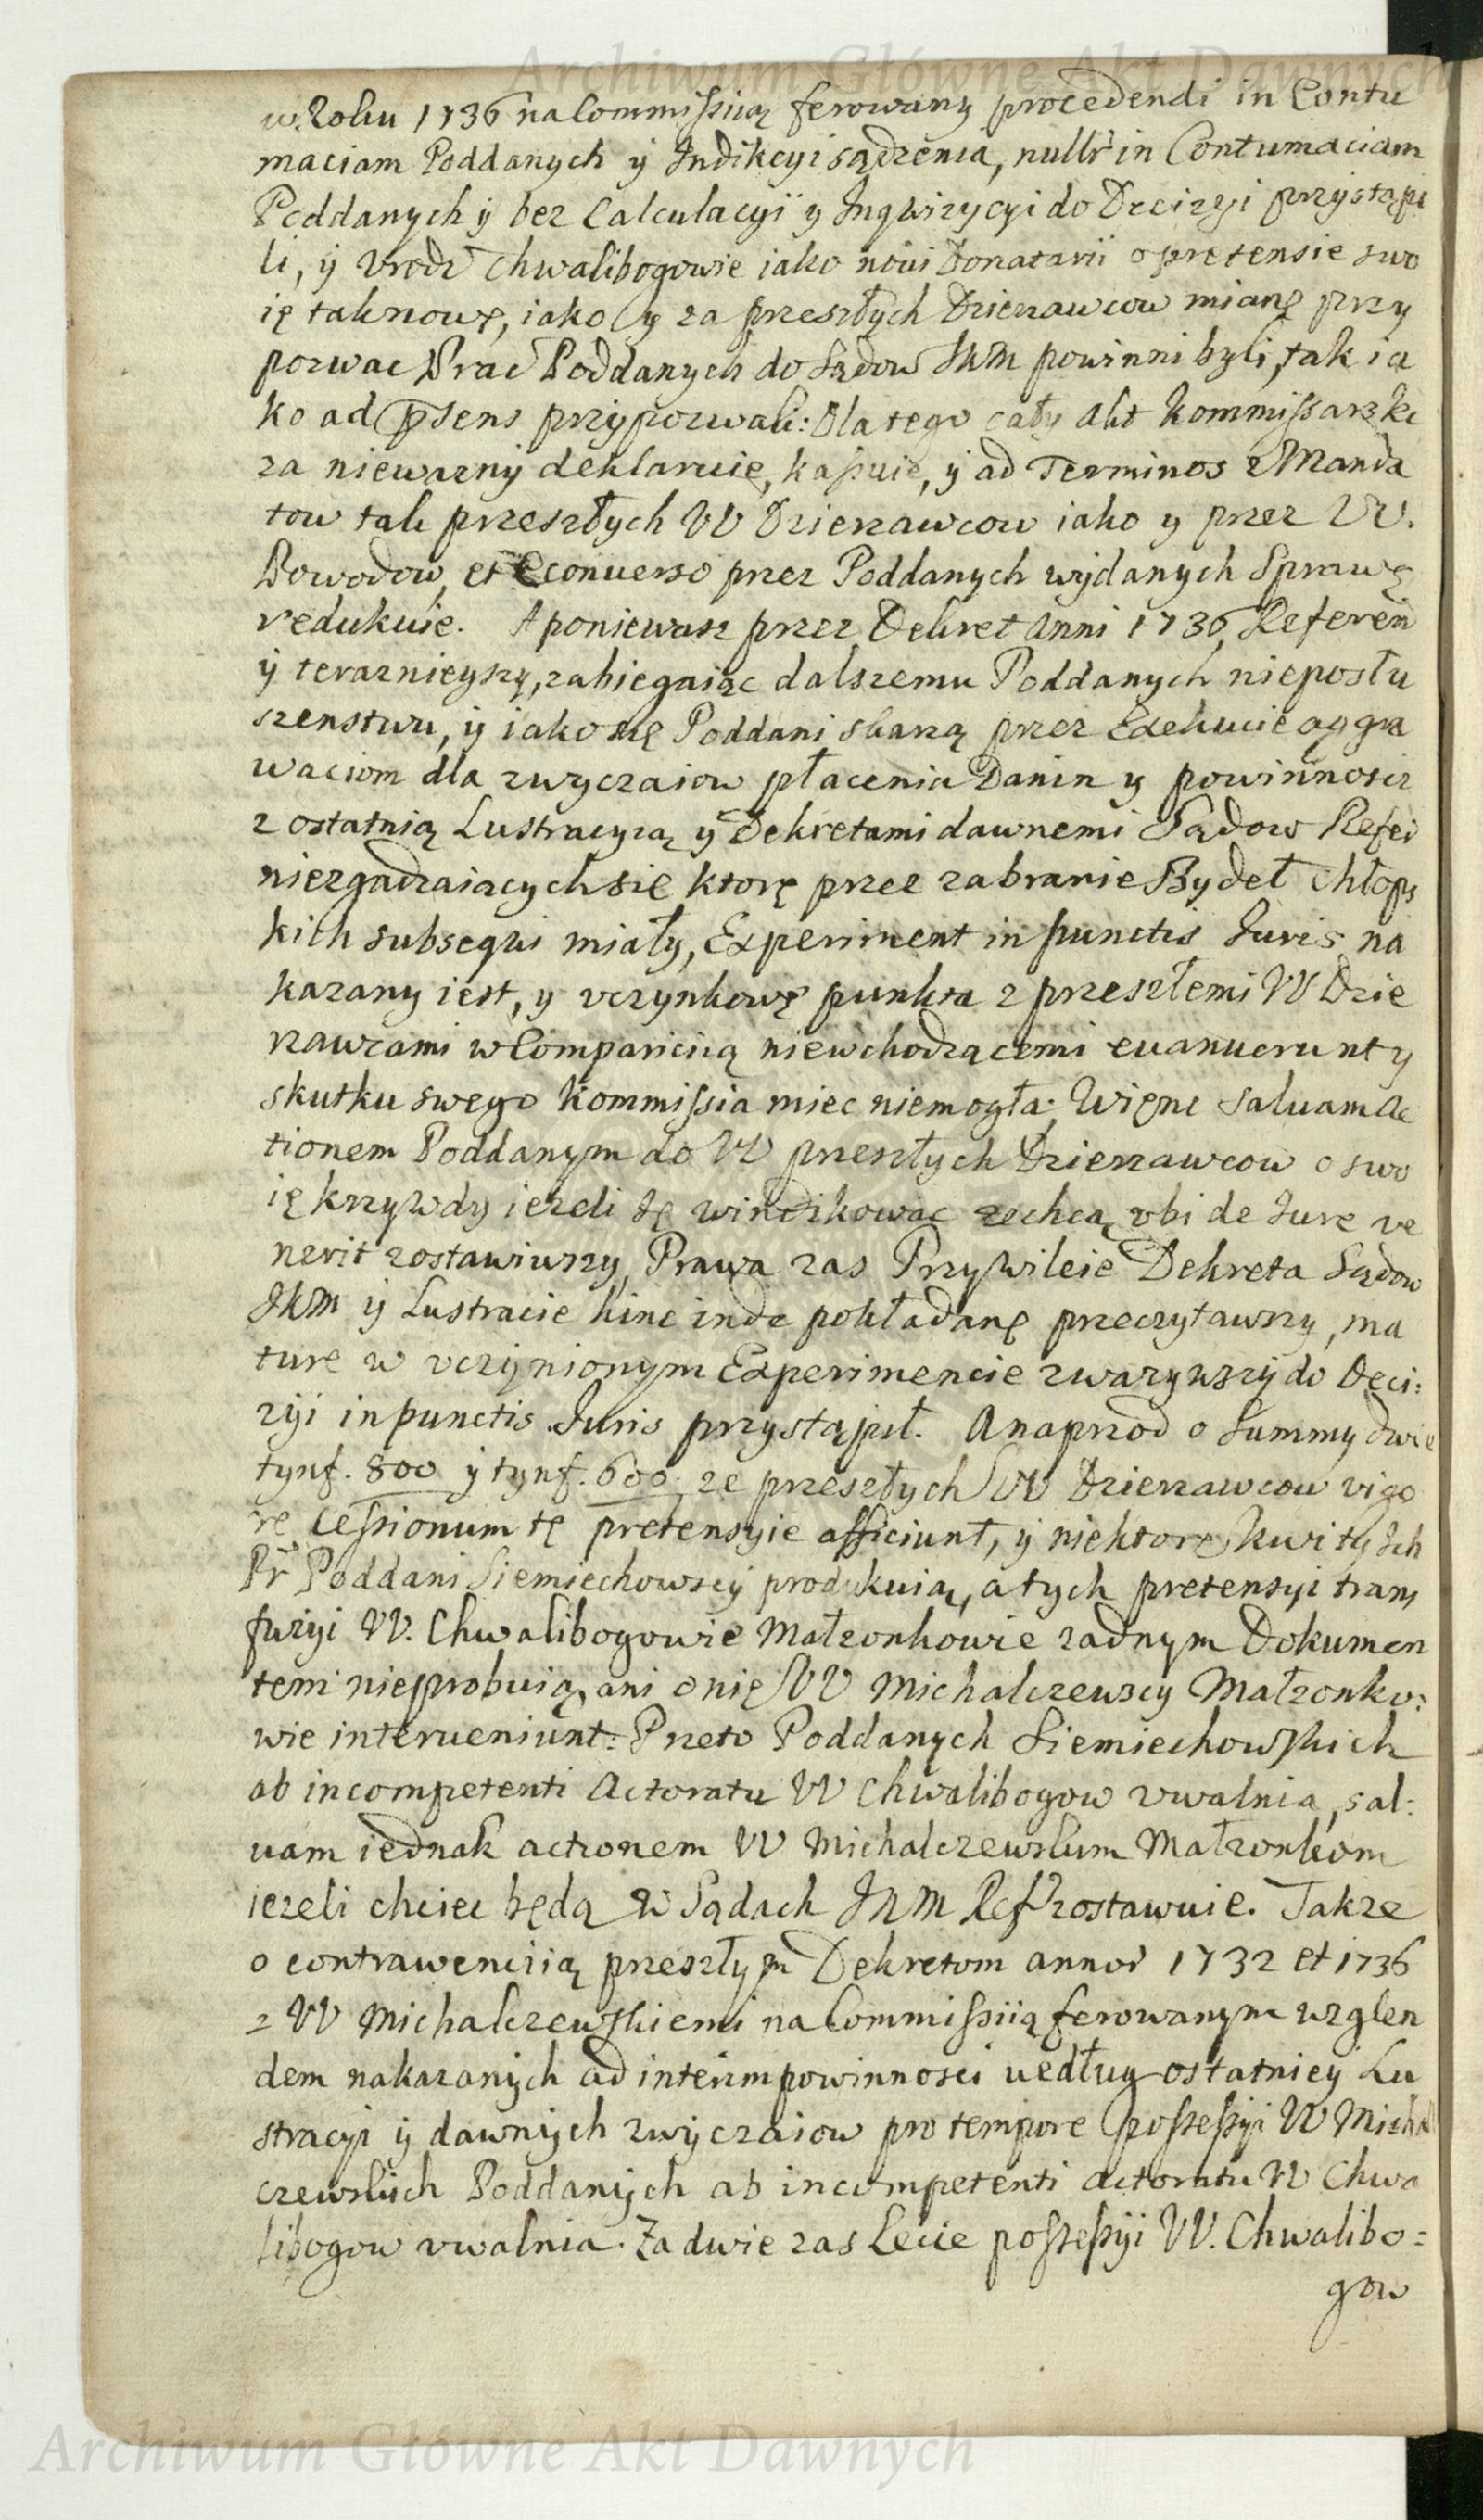 Archiwum Główne Akt Dawnych
w Roku 1736 na Commissiią ferowany procedendi in Contu
maciam Poddanych y Indikcyi sądzenia, nullr in Contumaciam
Poddanych y bez Calculacyi y Inqwizycyi do Decizyi przystąpi
li, y Vrodz Chwalibogowie iako novi Donatarii o pretensie swo
ię tak nowę, iako y za przeszłych Dzierzawcow mianę przy
pozwac Prac Poddanych do Sądow JKM powinni byli, tak ia
ko ad psens przypozwali: Dla tego cały Akt Kommissarski
za niewazny deklaruie, kassuie, y ad Terminos z Manda
tow tak przeszłych W Dzierzawcow iako y przez W.
Powodow, et econuerso przez Poddanych wydanych Sprawę
redukuie. A poniewasz przez Dekret Anni 1736 Referen
y teraznieyszy, zabiegaiąc dalszemu Poddanych nieposłu
szenstwu, y iako się Poddani skarzą przez Exekucie aggra
waciom dla zwyczaiow płacenia Danin y powinnosci
z ostatnią Lustracyią y Dekretami dawnemi Sądow Refer
niezgadzaiących się ktorę przez zabranie Bydeł Chłops
kich subseqwi miały, Experiment in punctis Iuris na
kazany iest, y vczynkowę punkta z przeszłemi W Dzie
rzawcami w Comparicią niewchodzącemi euanuerunt y
skutku swego Kommissia miec niemogła. Więnc saluam Ac
tionem Poddanym do W przeszłych Dzierzawcow o swo
ię krzywdy iezeli Ię windikowac zechcą vbi de Iure ve
nerit zostawiwszy, Prawa zas Przywileie Dekreta Sądow
JKM y Lustracie hinc inde pokładanę przeczytawszy, ma
ture w vczynionym Experimencie zwazywszy do Deci:
zyi in punctis Iuris przystąpił. A naprzod o Summy dwie
tynf. 800 y tynf. 600. ze przeszłych W Dzierzawcow vigo
re Cessionum tę pretensyie afficiunt, y niektorę kwity Ich
Pr Poddani Siemiechowscy produkuią, a tych pretensyi trans
fuzyi W. Chwalibogowie Małzonkowie zadnym Dokumen
tem nieprobuią, ani o nię W Michalczewscy Małzonko:
wie interueniunt: Przeto Poddanych Siemiechowskich
ab incompetenti Actoratu W Chwalibogow vwalnia, sal:
uam iednak actionem W Michalczewskim Małzonkom
iezeli chciec będą w Sądach JKM Ref zostawuie. Takze
o contrawenciią przeszłym Dekretom annor 1732 et 1736
z W Michalczewskiemi na Commissiią ferowanym wzglen
dem nakazanych ad interim powinnosci według ostatniey Lu
stracyi y dawnych zwyczaiow pro tempore possessyi W Michal
czewskich Poddanych ab incompetenti actoratu W Chwa
libogow vwalnia. Za dwie zas Lecie possessyi W. Chwalibo=
gow
Archiwum Główne Akt Dawnych